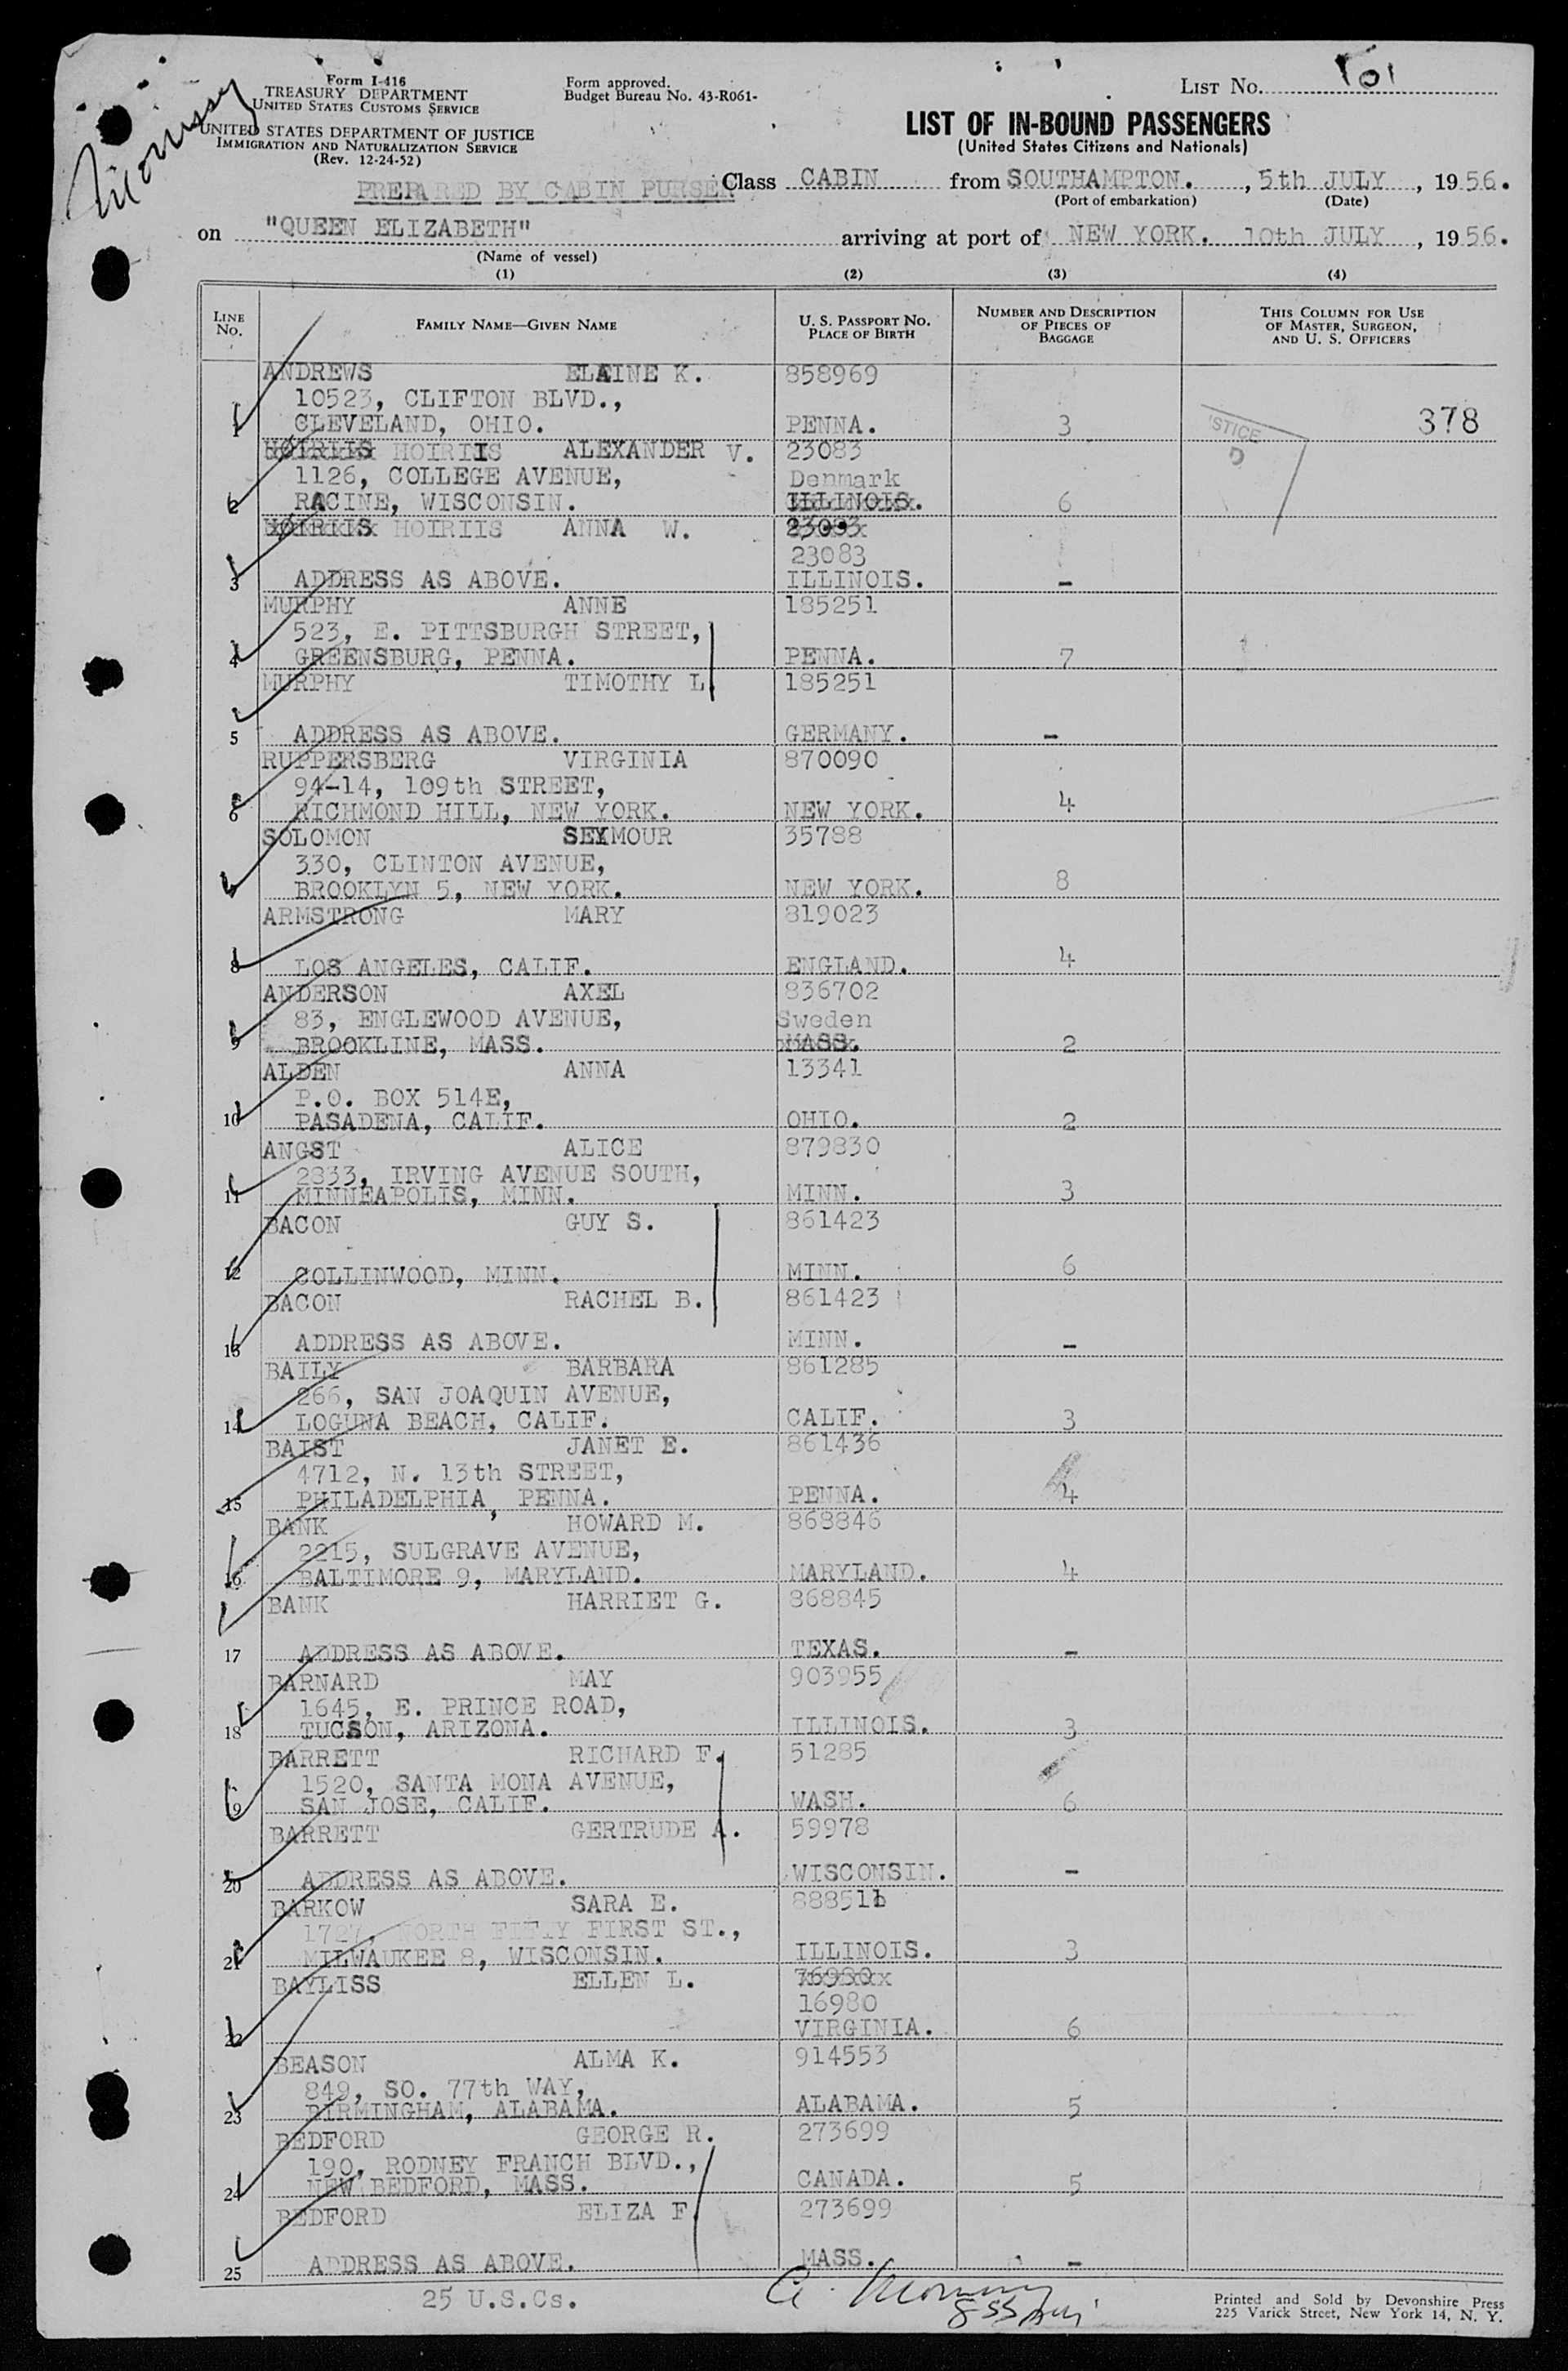 Form I-416
TREASURY DEPARTMENT
UNITED STATES CUSTOMS SERVICE
UNITED STATES DEPARTMENT OF JUSTICE
IMMIGRATION AND NATURALIZATION SERVICE
(Rev. 12-24-52)
Form approved.
Budget Bureau No. 43-R061-
LIST NO. 101
LIST OF IN-BOUND PASSENGERS
(United States Citizens and Nationals)
PREPARED BY CABIN PURSER Class CABIN from SOUTHAMPTON. , 5th JULY , 1956.
(Port of embarkation) (Date)
on "QUEEN ELIZABETH" arriving at port of NEW YORK. 10th JULY , 1956.
(Name of vessel)
(1) (2) (3) (4)
LINE NO. FAMILY NAME—GIVEN NAME U. S. PASSPORT NO. PLACE OF BIRTH NUMBER AND DESCRIPTION OF PIECES OF BAGGAGE THIS COLUMN FOR USE OF MASTER, SURGEON, AND U. S. OFFICERS
ANDREWS ELAINE K. 858969
10523, CLIFTON BLVD.,
1 CLEVELAND, OHIO. PENNA. 3 378
HOIRIIS HOIRIIS ALEXANDER V. 23083
1126, COLLEGE AVENUE, Denmark
2 RACINE, WISCONSIN. ILLINOIS. 6
HOIRIIS HOIRIIS ANNA W. 23083
23083
3 ADDRESS AS ABOVE. ILLINOIS. -
MURPHY ANNE 185251
523, E. PITTSBURGH STREET,
4 GREENSBURG, PENNA. PENNA. 7
MURPHY TIMOTHY L. 185251
5 ADDRESS AS ABOVE. GERMANY. -
RUPPERSBERG VIRGINIA 870090
94-14, 109th STREET,
6 RICHMOND HILL, NEW YORK. NEW YORK. 4
SOLOMON SEYMOUR 35788
330, CLINTON AVENUE,
BROOKLYN 5, NEW YORK. NEW YORK. 8
ARMSTRONG MARY 819023
8 LOS ANGELES, CALIF. ENGLAND. 4
ANDERSON AXEL 836702
83, ENGLEWOOD AVENUE, Sweden
9 BROOKLINE, MASS. MASS. 2
ALDEN ANNA 13341
P.O. BOX 514E,
10 PASADENA, CALIF. OHIO. 2
ANGST ALICE 879830
2833, IRVING AVENUE SOUTH,
11 MINNEAPOLIS, MINN. MINN. 3
BACON GUY S. 861423
12 COLLINWOOD, MINN. MINN. 6
BACON RACHEL B. 861423
13 ADDRESS AS ABOVE. MINN. -
BAILY BARBARA 861285
266, SAN JOAQUIN AVENUE,
14 LOGUNA BEACH, CALIF. CALIF. 3
BAIST JANET E. 861436
4712, N. 13th STREET,
15 PHILADELPHIA, PENNA. PENNA. 4
BANK HOWARD M. 868846
2215, SULGRAVE AVENUE,
16 BALTIMORE 9, MARYLAND. MARYLAND. 4
BANK HARRIET G. 868845
17 ADDRESS AS ABOVE. TEXAS. -
BARNARD MAY 903955
1645, E. PRINCE ROAD,
18 TUCSON, ARIZONA. ILLINOIS. 3
BARRETT RICHARD F. 51285
1520, SANTA MONA AVENUE,
19 SAN JOSE, CALIF. WASH. 6
BARRETT GERTRUDE A. 59978
20 ADDRESS AS ABOVE. WISCONSIN. -
BARKOW SARA E.
1727, NORTH FIFTY FIRST ST.,
21 MILWAUKEE 8, WISCONSIN. ILLINOIS. 3
BAYLISS ELLEN L. 76980
16980
22 VIRGINIA. 6
BEASON ALMA K. 914553
849, SO. 77th WAY,
23 BIRMINGHAM, ALABAMA. ALABAMA. 5
BEDFORD GEORGE R. 273699
190, RODNEY FRANCH BLVD.,
24 NEW BEDFORD, MASS. CANADA. 5
BEDFORD ELIZA F. 273699
25 ADDRESS AS ABOVE. MASS. -
25 U.S.Cs.
Printed and Sold by Devonshire Press
225 Varick Street, New York 14, N. Y.